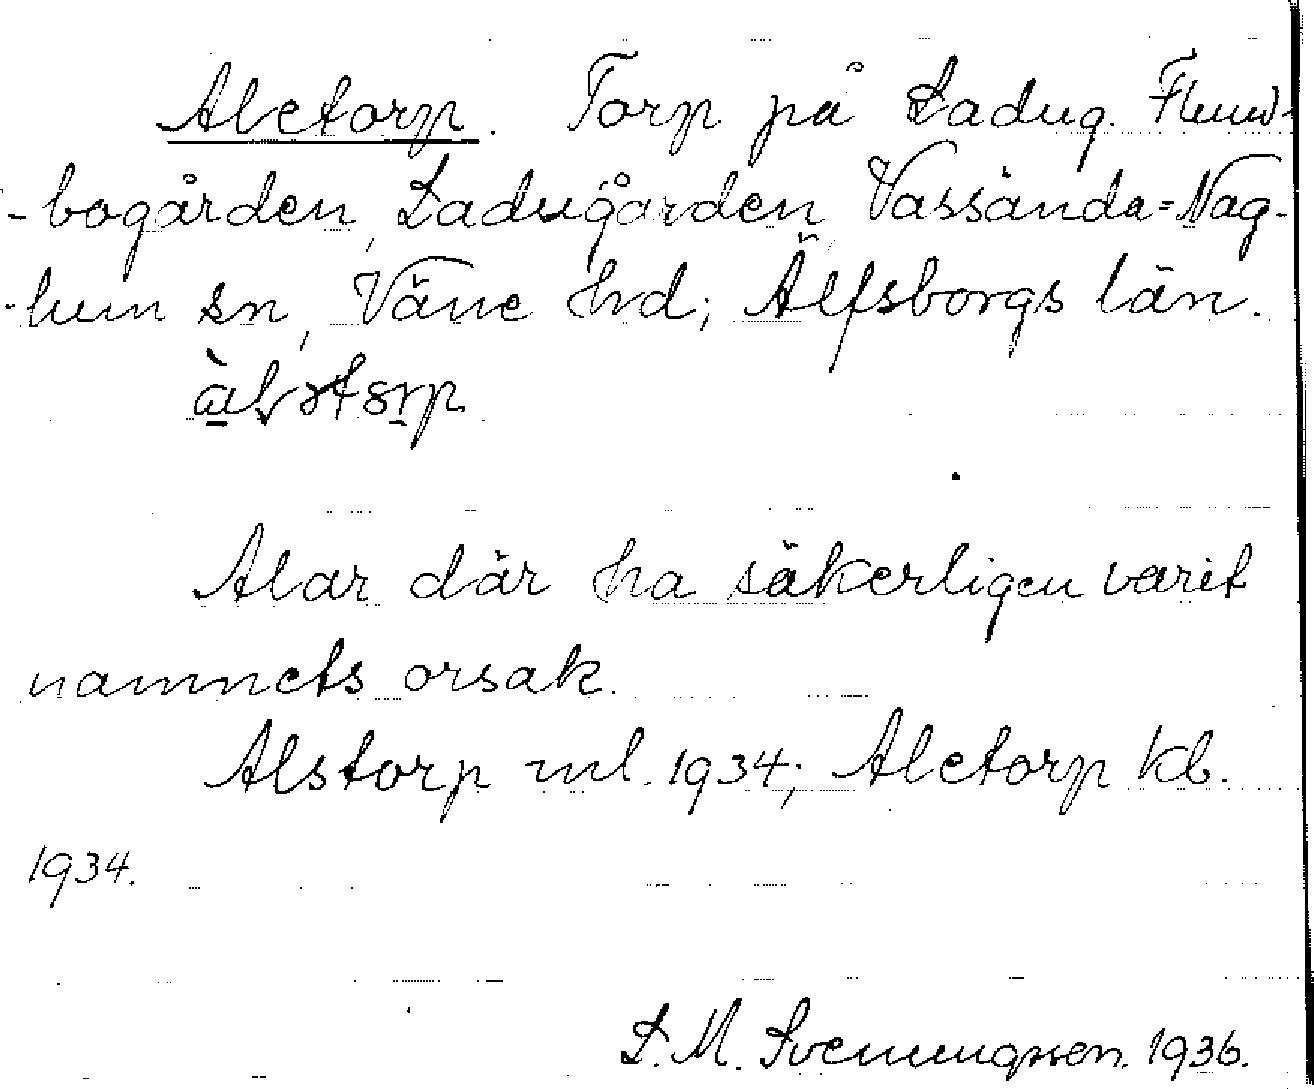 Aletorp. Torp på Ladug. Hund-
-bogården, Ladugården, Vassända=Nag-
-lum sn, Väne hd; Älfsborgs län.
Alar där ha säkerligen varit
namnets orsak.
Alstorp ml. 1934; Aletorp kb.
1934.
L. M. Svenungsson. 1936.